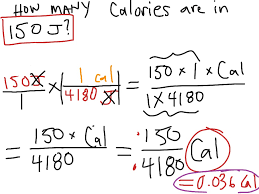 HOW MANY Calories are in
150 J?
150 J/1 × 1 Cal/4180 J = 150 × 1 × Cal/1 × 4180
= 150 × Cal/4180 = 150/4180 Cal
= 0.036 Cal